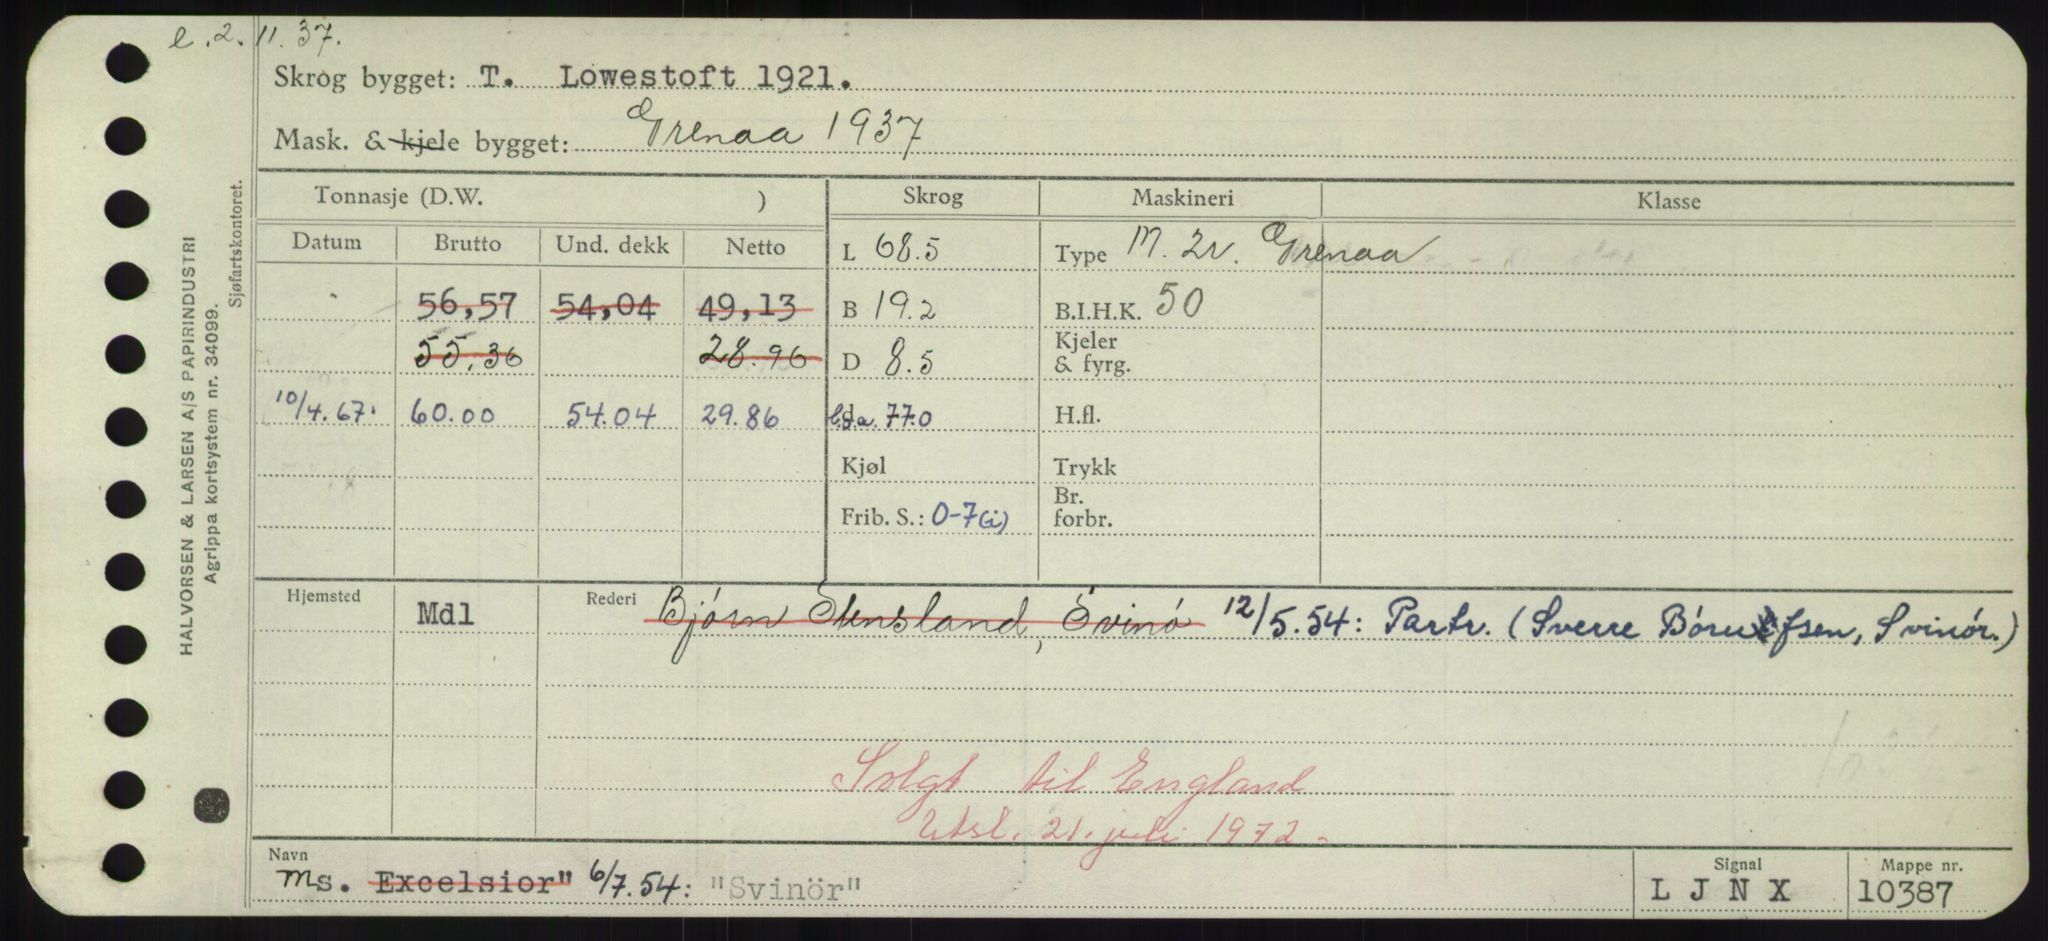 e.2.11.37.
Skrog bygget: T. Lowestoft 1921.
Mask. & kjele bygget: Grenaa 1937
Tonnasje (D.W. ) Skrog Maskineri Klasse
Datum Brutto Und. dekk Netto L 68.5 Type M. 2v. Grenaa
56,57 54,04 49,13 B 19.2 B.I.H.K. 50
55.36 28.96 D 8.5 Kjeler & fyrg.
10/4.67. 60.00 54.04 29.86 l.o.a. 77.0 H.fl.
Kjøl Trykk
Frib. S.: 0-7(i) Br. forbr.
Hjemsted Mdl Rederi Bjørn Stensland, Svinø 12/5.54: Partr. (Sverre fsen, Svinör.)
Solgt til England
Utsl. 21. juli 1972.
Navn Signal Mappe nr.
Ms. Excelsior" 6/7.54: "Svinör" L J N X 10387
HALVORSEN & LARSEN A/S PAPIRINDUSTRI
Agrippa kortsystem nr. 34099.
Sjøfartskontoret.